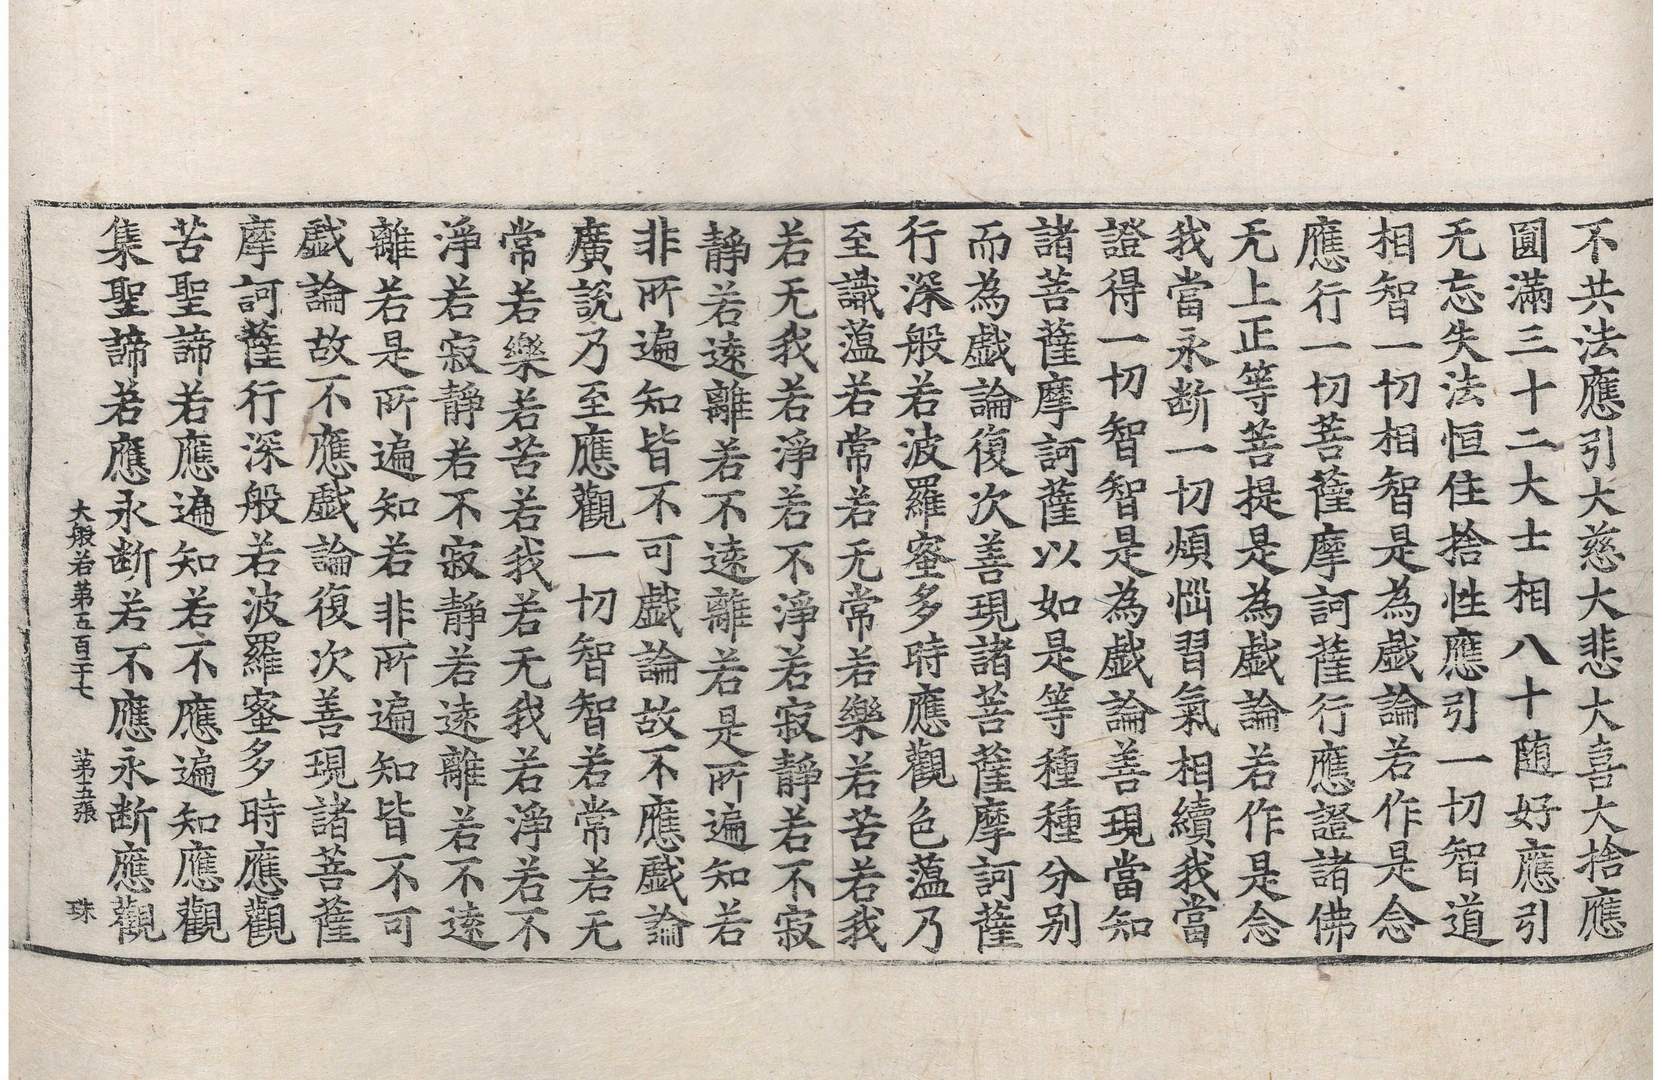 不共法應引大慈大悲大喜大捨應
圎滿三十二大士相八十随好應引
无忘失法恒住捨性應引一切智道
相智一切相智是為戱論若作是念
應行一切菩薩摩訶薩行應證諸佛
无上正等菩提是為戱論若作是念
我當永断一切煩惱習氣相續我當
證得一切智智是為戱論善現當知
諸菩薩摩訶薩以如是等種種分別
而為戱論復次善現諸菩薩摩訶薩
行深般若波羅蜜多時應觀色蘊乃
至識蘊若常若无常若樂若苦若我
若无我若淨若不淨若寂靜若不寂
靜若遠離若不遠離若是所遍知若
非所遍知皆不可戱論故不應戱論
廣說乃至應觀一切智智若常若无
常若樂若苦若我若无我若淨若不
淨若寂靜若不寂靜若遠離若不遠
離若是所遍知若非所遍知皆不可
戱論故不應戱論復次善現諸菩薩
摩訶薩行深般若波羅蜜多時應觀
苦聖諦若應遍知若不應遍知應觀
集聖諦若應永断若不應永断應觀
大般若第五百二十七 第五張 珠